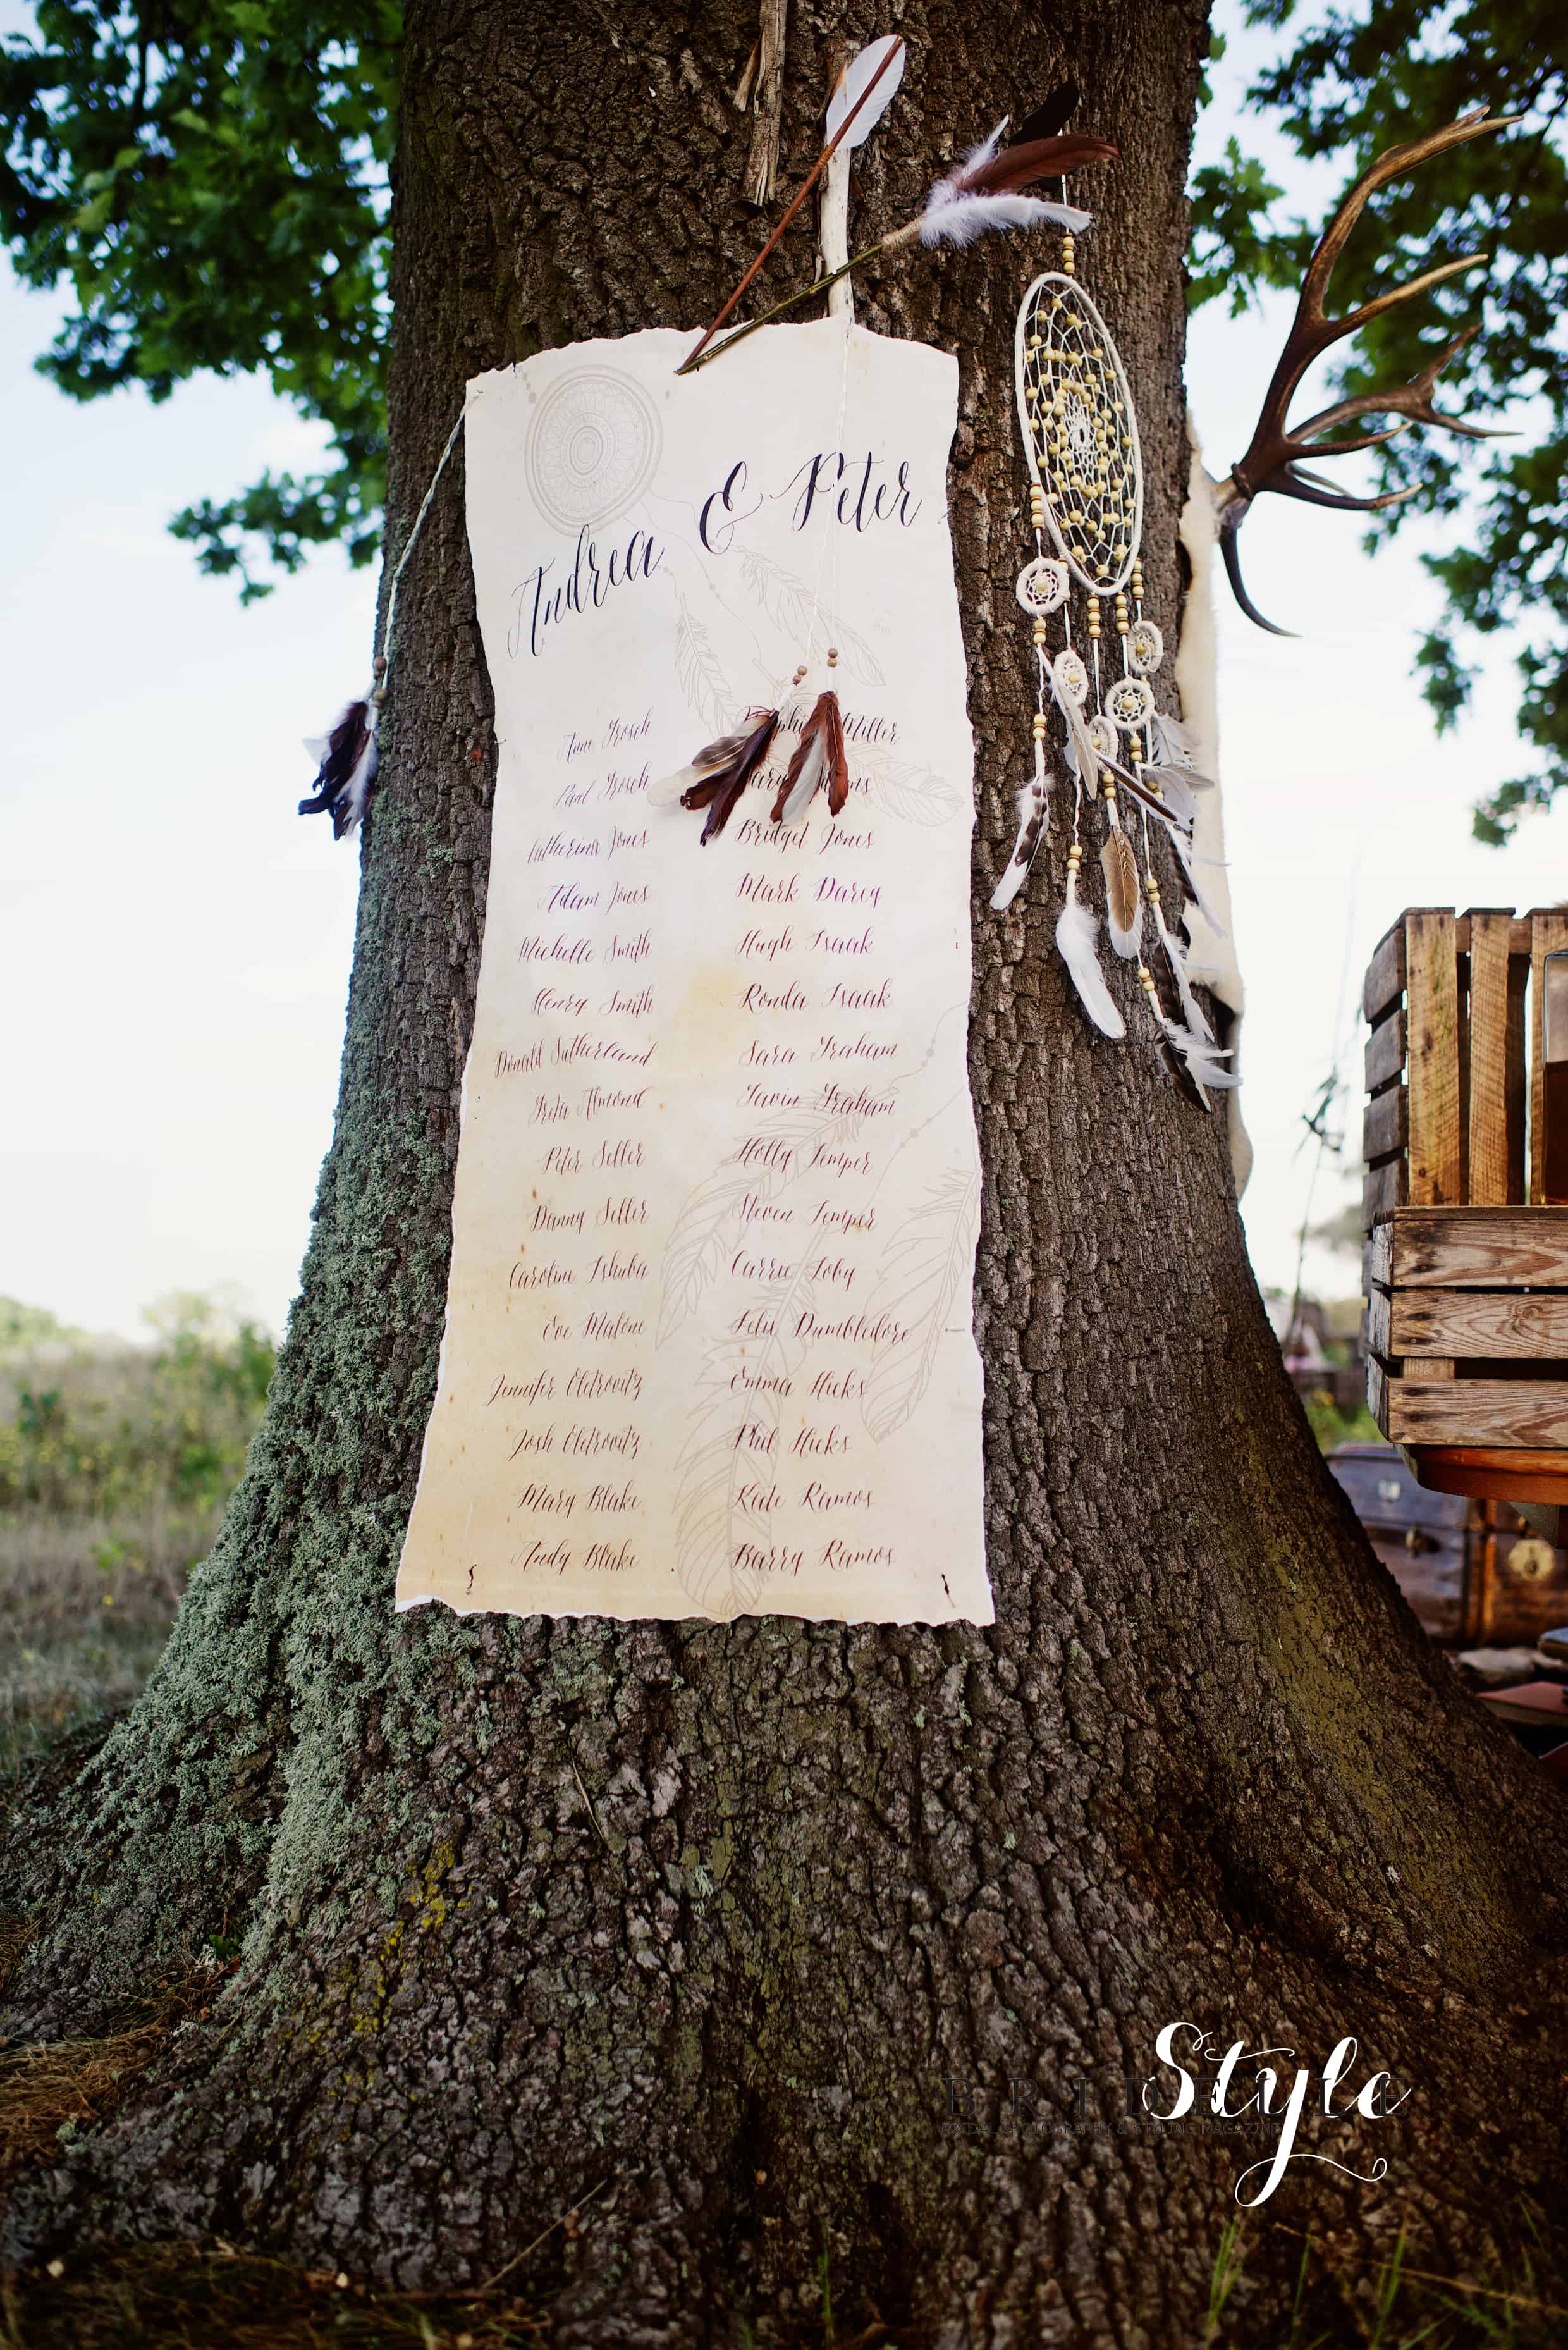 Andrea & Peter
Anne Grosch
Paul Grosch
Catherina Jones
Adam Jones
Michelle Smith
Henry Smith
Donald Sutherland
Greta Almond
Peter Seller
Danny Seller
Caroline Ishuba
Eve Malone
Jennifer Oletrovitz
Josh Oletrovitz
Mary Blake
Andy Blake
Miller
Bridget Jones
Mark Darcy
Hugh Isaak
Ronda Isaak
Sara Graham
Gavin Graham
Holly Temper
Steven Temper
Carrie Loby
Felix Dumbledore
Emma Hicks
Phil Hicks
Kate Ramos
Barry Ramos
Style